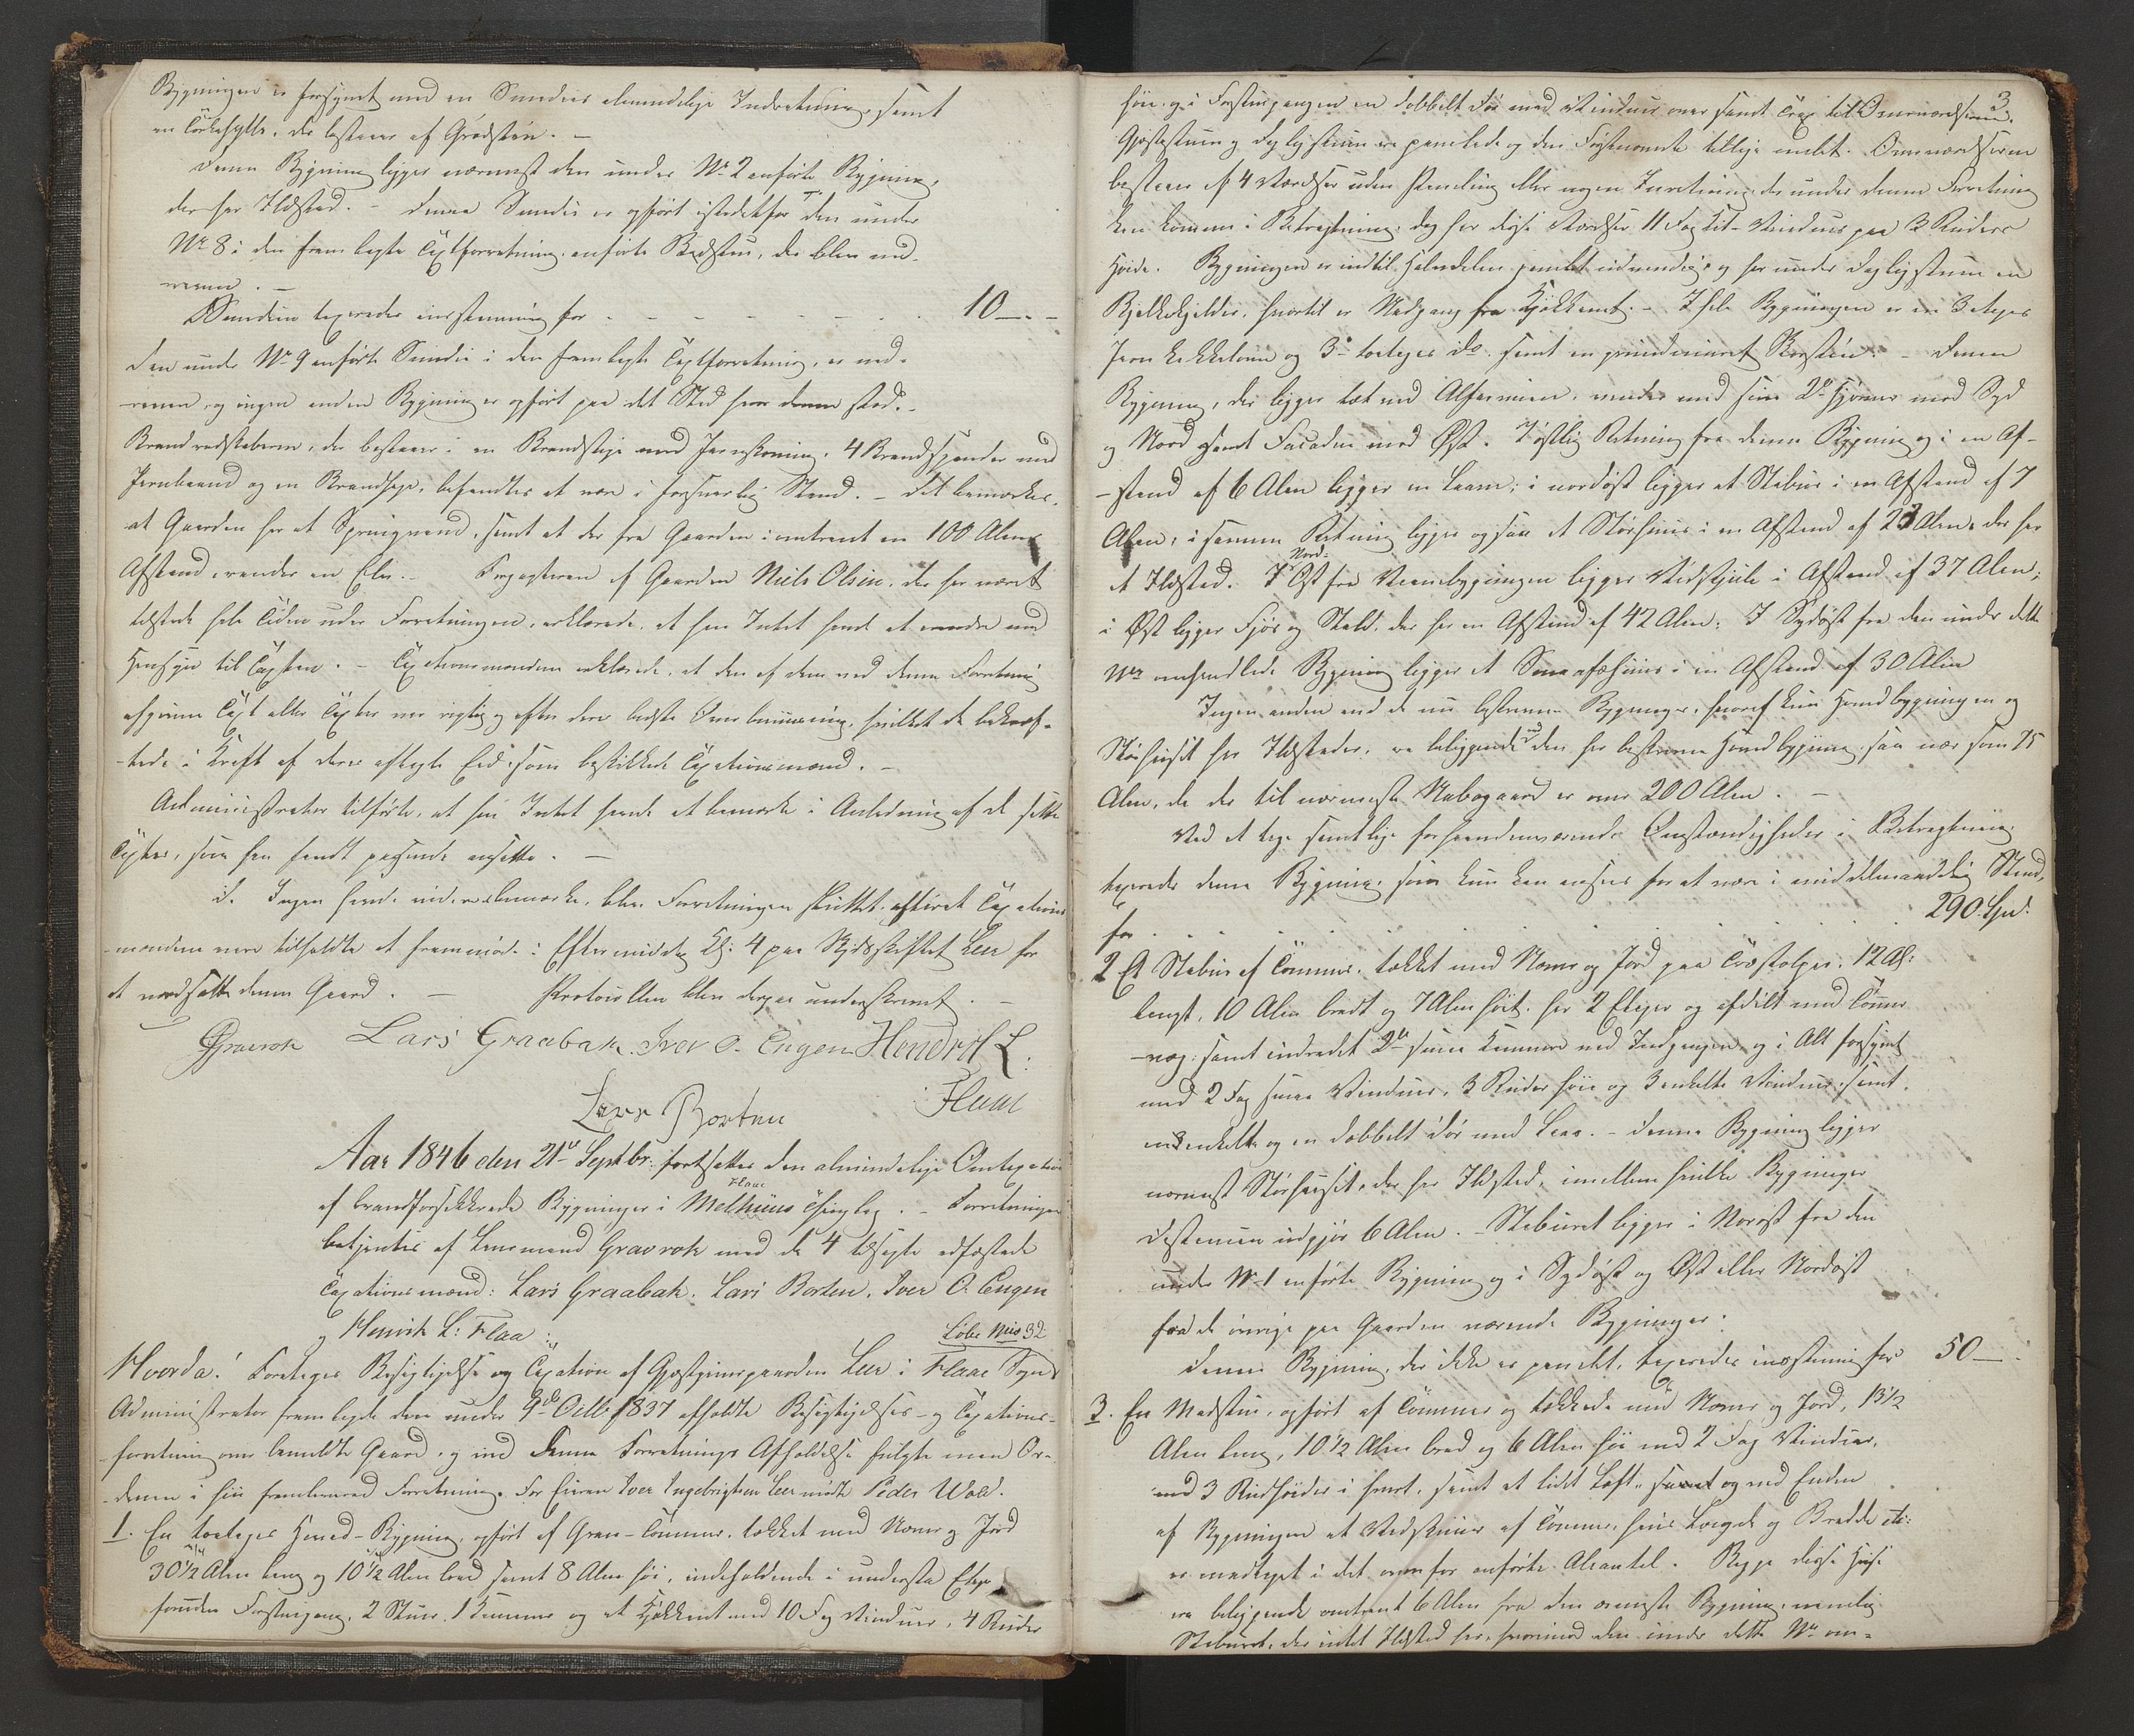 Bygningen er forsynet med en Smedies almindelige Indretning, samt
en Tørkehytte, der bestaaer af Graasteen. —
Denne Bygning ligger nærmest den under No 2 anførte Bygning,
der har Ildsted. — Denne Smedie er opført istedetfor den under
No 8 i den fremlagte Taxtforretning anførte Badstue, der blev ned-
reven. —
Smedien taxeredes eensstemmig for - - - - - - 10 —. —
Den under No 9 anførte Smedie i den fremlagte Taxtforretning, er ned-
reven og ingen anden Bygning er opført paa det Sted hvor denne stod. —
Brandredskaberne, der bestaaer i en Brandstige med Jernskoning, 4 Brandspande med
Jernbaand og en Brandhage, befandtes at være i forsvarlig Stand. — Det bemærkes,
at Gaarden har et Springvand, samt at der fra Gaarden i omtrent en 100 Alens
Afstand, render en Elv. — Forpagteren af Gaarden Niels Olsen, der har været
tilstede hele Tiden under Forretningen, erklærede, at han Intet havde at erindre med
Hensyn til Taxten. — Taxationsmændene erklærede, at den af dem ved denne Forretning
afgivne Taxt eller Taxter var rigtig og efter deres bedste Overbeviisning, hvilket de bekræf-
tede i Kraft af deres aflagte Eed som beskikkede Taxationsmænd. —
Administrator tilførte, at han Intet havde at bemærke i Anledning af de satte
Taxter, som han fandt passende ansatte. —
Da Ingen havde videre at bemærke, blev Forretningen sluttet, efterat Taxations-
mændene vare tilholdte at fremmøde i Eftermiddag Kl: 4 paa Skydsskiftet Leer for
at omtaxere denne Gaard. — Protocollen blev derpaa underskrevet. —
Gravrok Lars Graabak. Iver O. Engen Hendrik L:
Lars Borten Flaae
Aar 1846 den 21de Septbr: fortsattes den almindelige Omtaxation
Flaae
af brandforsikkrede Bygninger i Melhuus Thinglag. — Forretningen
betjentes af Lensmand Gravrok med de 4 tilsagte edfæstede
Taxationsmænd: Lars Graabak, Lars Borten, Iver O. Engen
og Henrik L: Flaa:
Løbe Nro 32
Hvorda! Foretoges Besigtigelse og Taxation af Gjæstgivergaarden Leer i Flaae Sogn
Administrator fremlagde den under 9de Octbr 1837 afholdte Besigtigelses- og Taxations-
forretning over bemeldte Gaard, og ved denne Forretnings Afholdelse fulgte man Or-
denen i hiin fremlevered Forretning. For Eieren Iver Ingebrigtsen Leer mødte Peder Wold.
1. En toetages Hoved-Bygning, opført af Gran-Tømmer, tækket med Næver og Jord
30 1/2 Alen lang og 10 1/2 Alen bred samt 8 Alen høi, indeholdende i underste Etage
foruden Forstuegang, 2 Stuer, 1 Kammer og et Kjøkkent med 10 Fag Vinduer, 4 Ruder
3.
høie, og i Forstuegangen en dobbelt Dør med Vindue over samt Trap til Overværelserne.
Gjæstestuen og Dagligstuen ere panelede og den Førstnævnte tillige malet. Overværelserne
bestaaer af 4 Værelser uden Paneling eller nogen Indretning der under denne Forretning
kan komme i Betragtning, dog har disse Værelser 11 Fag Vinduer paa 3 Ruders
Høide. Bygningen er indtil Halvdelen panelet udvendig, og har under Dagligstuen en
Bjelkekjelder, hvortil er Nedgang fra Kjøkkenet. — I hele Bygningen er en 3 etages
Jern Kakkelovn og 3de toetages do. samt en grundmuret Skorsteen. — Denne
Bygning, der ligger tæt ved Alfarveien, vender med sine 2de Hjørner mod Syd
og Nord samt Facaden mod Øst. I østlig Retning fra denne Bygning og i en Af-
stand af 6 Alen ligger en Laane; i nordøst ligger et Stabur i en Afstand af 7
Alen; i samme Retning ligger ogsaa et Størhuus i en Afstand af 23 Alen, der har
Nord-
et Ildsted. I Øst fra Vaanebygningen ligger Vedskjule i Afstand af 37 Alen;
i Øst ligger Fjøs og Stald, der har en Afstand af 42 Alen; I Sydøst fra den under dette
No omhandlede Bygning ligger et Smaafæhuus i en Afstand af 30 Alen
Ingen anden end de nu bestemme Bygninger, hvoraf kun Hovedbygningen og
Størhuset har Ildsteder, ere beliggende ved den her beskrevne Hovedbygning saa nær som 75
Alen, da der til nærmeste Nabogaard er over 200 Alen. —
Ved at tage samtlige forhaandenværende Omstændigheder i Betragtning,
taxeredes denne Bygning, som kun kan ansees for at være i middelmaadelig Stand,
for . . . . . . . . . . 290 Spd:
2 Et Stabur af Tømmer, tækket med Næver og Jord paa Træstolper, 12 Al:
langt, 10 Alen bredt og 7 Alen høit, har 2 Etager og afdeelt med Tømmer-
væg, samt indredet 2de smaa Kammere ved Indgangen, og i Alt forsynet
med 2 Fag smaa Vinduer, 3 Ruder høie og 3 enkelte Vinduer, samt
3 enkelte og en dobbelt Dør med Laas. — Denne Bygning ligger
nærmest Størhuset, der har Ildsted, imellem hvilke Bygninger
Distancen udgjør 6 Alen. — Staburet ligger i Nordøst fra den
under No 1 anførte Bygning og i Sydøst og Øst eller Nordøst
fra de øvrige paa Gaarden værende Bygninger.
Denne Bygning, der ikke er panelet, taxeredes eensstemmig for 50 —.
3. En Madstue, opført af Tømmer og tækkede med Næver og Jord, 13 1/2
Alen lang, 10 1/2 Alen bred og 6 Alen høi med 2 Fag Vinduer,
med 3 Rudhøider i hvert, samt et lidet Loft, samt og ved Enden
af Bygningen et Vedskuur af Tømmer, hvis Længde og Bredde etc:
er medtaget i det ovenfor anførte Alenantal. Begge disse Huse
ere beliggende omtrent 6 Alen fra den nærmeste Bygning, nemlig
Staburet, der intet Ildsted har, hvorimod den under dette No om-